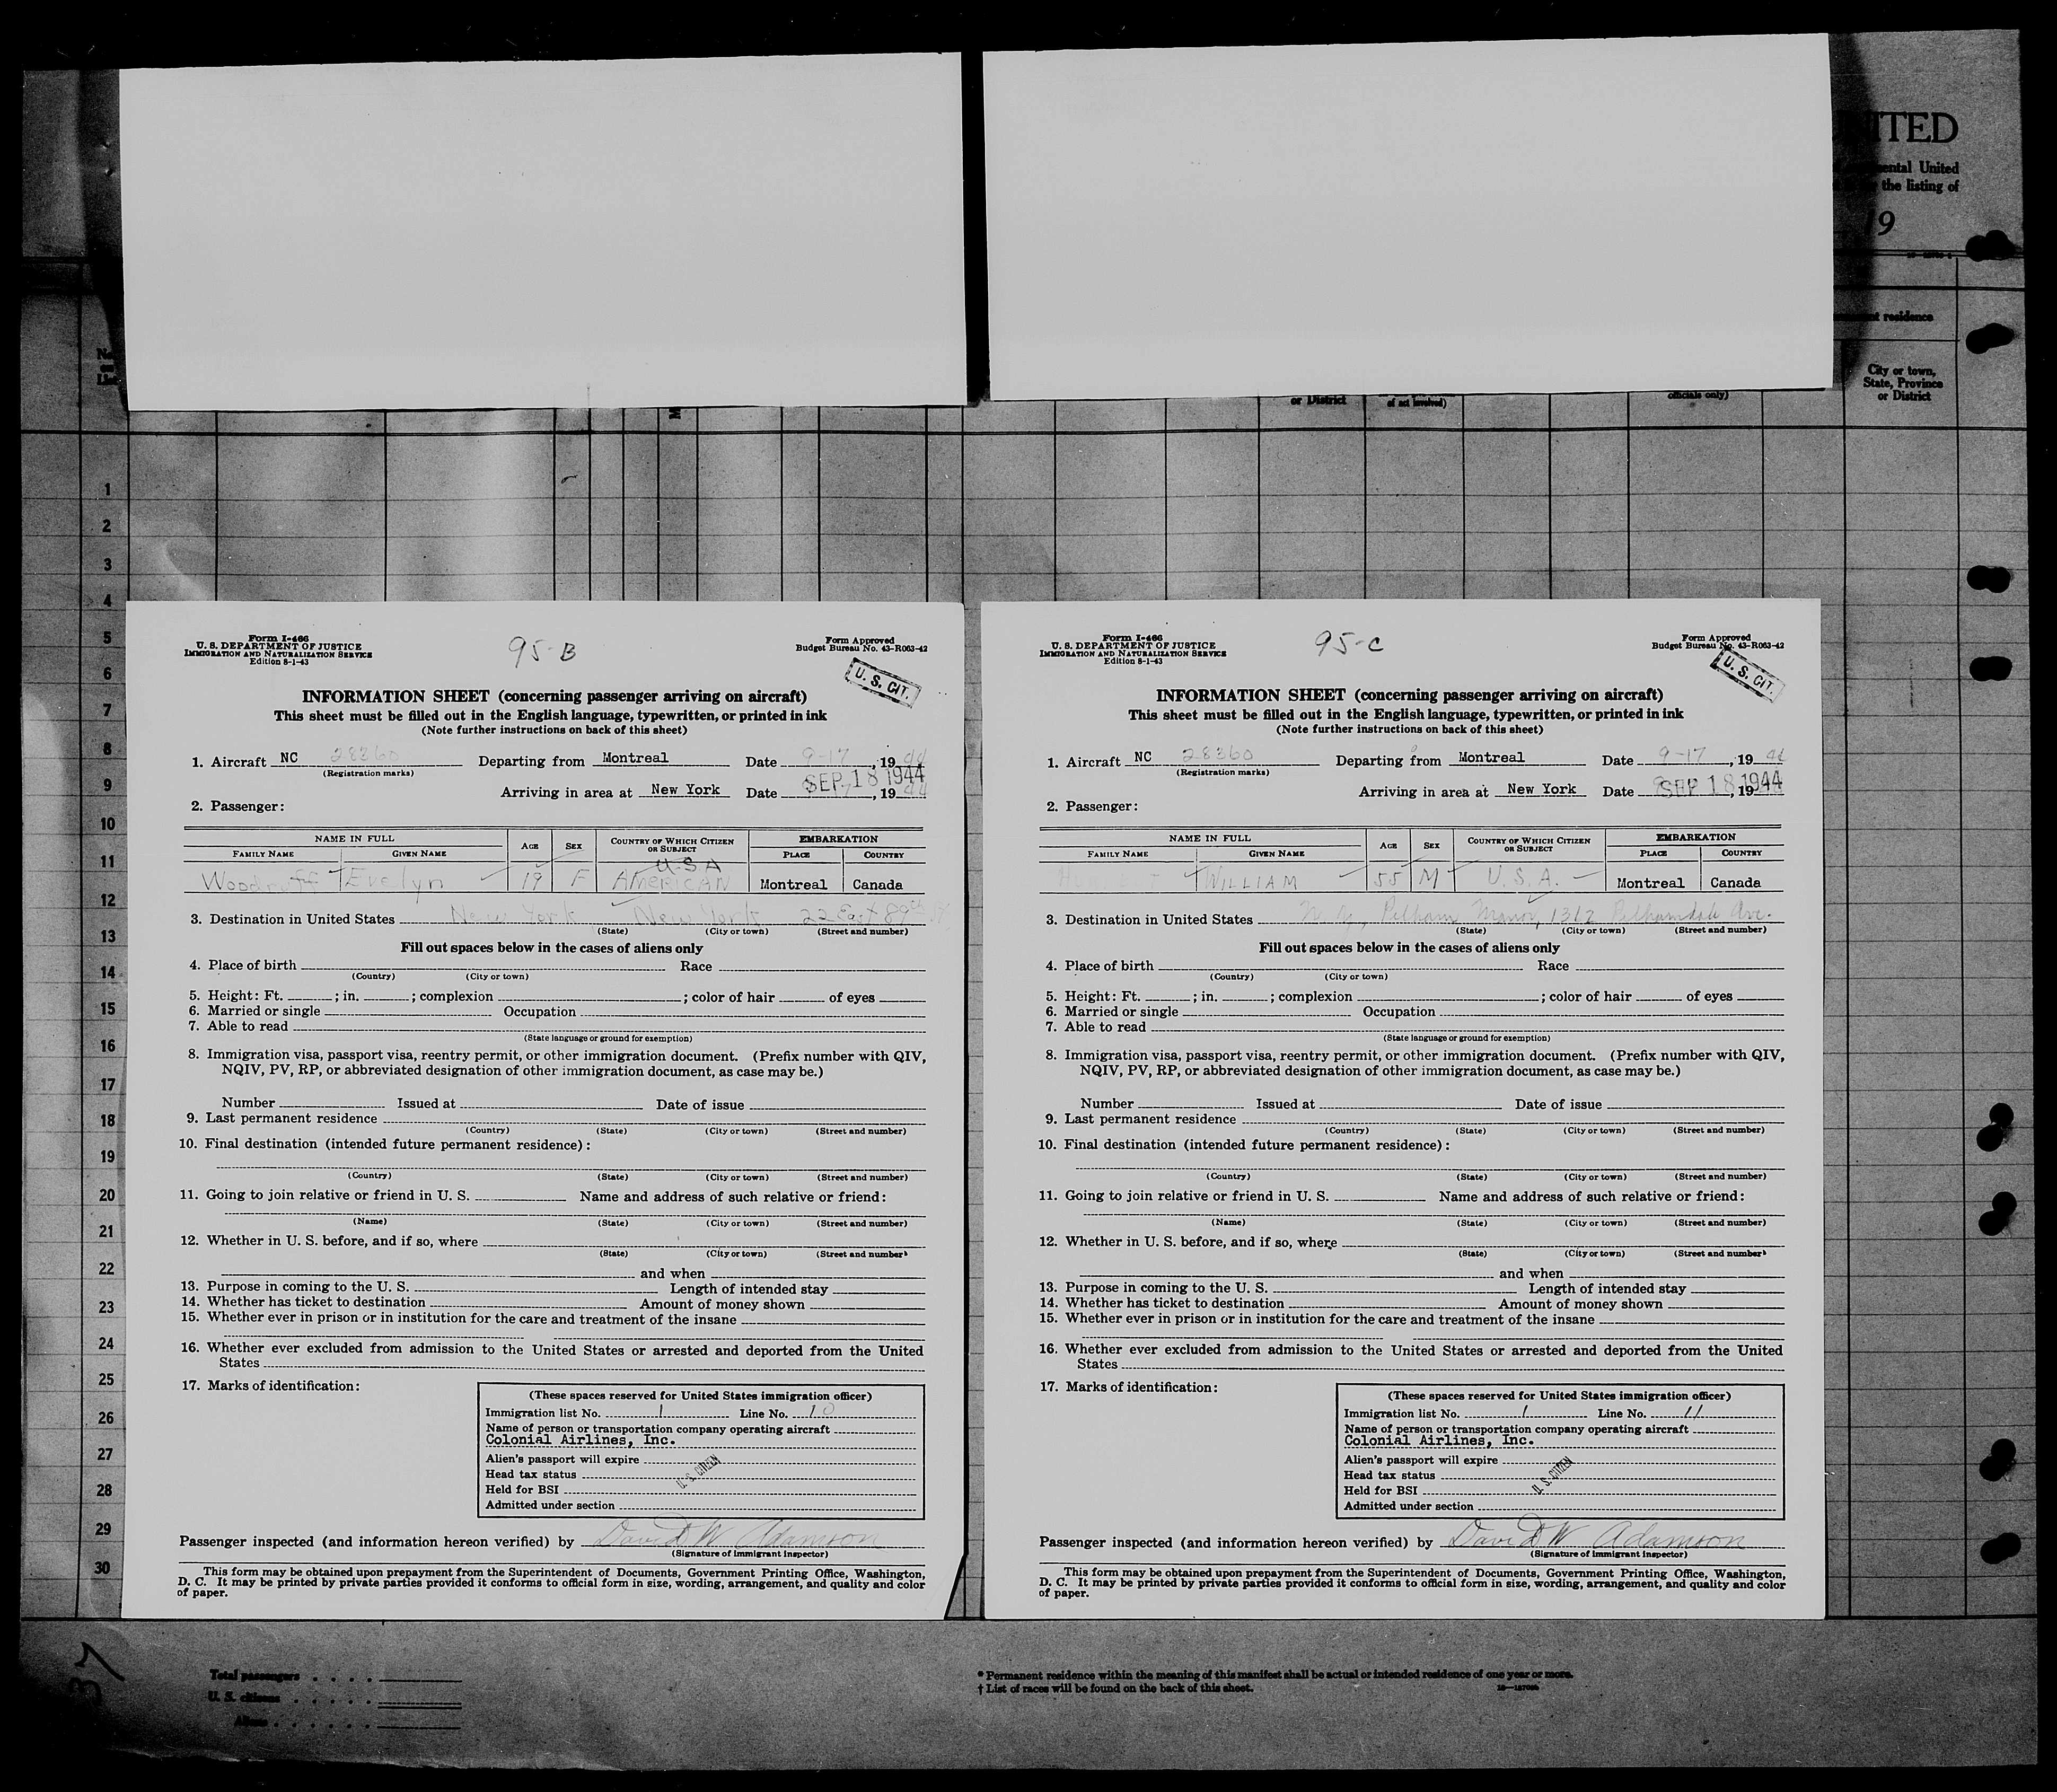 ITED
ental United
the listing of
19
residence
City or town,
State, Province
or District
or District
of act involved)
officials only)
1
2
3
4
5
6
7
8
9
10
11
12
13
14
15
16
17
18
19
20
21
22
23
24
25
26
27
28
29
30
Form I-466
U. S. DEPARTMENT OF JUSTICE
IMMIGRATION AND NATURALIZATION SERVICE
Edition 8-1-43
95-B
Form Approved
Budget Bureau No. 43-R063-42
U. S. CIT.
INFORMATION SHEET (concerning passenger arriving on aircraft)
This sheet must be filled out in the English language, typewritten, or printed in ink
(Note further instructions on back of this sheet)
1. Aircraft NC 28360 Departing from Montreal Date 9-17, 1944
(Registration marks)
SEP 18 1944
Arriving in area at New York Date , 19
2. Passenger:
NAME IN FULL AGE SEX COUNTRY OF WHICH CITIZEN OR SUBJECT EMBARKATION
FAMILY NAME GIVEN NAME PLACE COUNTRY
U.S.A
Woodruff Evelyn 19 F AMERICAN Montreal Canada
3. Destination in United States New York New York 22 East 89th
(State) (City or town) (Street and number)
Fill out spaces below in the cases of aliens only
4. Place of birth Race
(Country) (City or town)
5. Height: Ft. ; in. ; complexion ; color of hair of eyes
6. Married or single Occupation
7. Able to read
(State language or ground for exemption)
8. Immigration visa, passport visa, reentry permit, or other immigration document. (Prefix number with QIV,
NQIV, PV, RP, or abbreviated designation of other immigration document, as case may be.)
Number Issued at Date of issue
9. Last permanent residence
(Country) (State) (City or town) (Street and number)
10. Final destination (intended future permanent residence):
(Country) (State) (City or town) (Street and number)
11. Going to join relative or friend in U. S. Name and address of such relative or friend:
(Name) (State) (City or town) (Street and number)
12. Whether in U. S. before, and if so, where
(State) (City or town) (Street and number)
and when
13. Purpose in coming to the U. S. Length of intended stay
14. Whether has ticket to destination Amount of money shown
15. Whether ever in prison or in institution for the care and treatment of the insane
16. Whether ever excluded from admission to the United States or arrested and deported from the United
States
17. Marks of identification:
(These spaces reserved for United States immigration officer)
Immigration list No. 1 Line No. 10
Name of person or transportation company operating aircraft
Colonial Airlines, Inc.
Alien's passport will expire
Head tax status
U. S. CITIZEN
Held for BSI
Admitted under section
Passenger inspected (and information hereon verified) by David W Adamson
(Signature of Immigrant Inspector)
This form may be obtained upon prepayment from the Superintendent of Documents, Government Printing Office, Washington,
D. C. It may be printed by private parties provided it conforms to official form in size, wording, arrangement, and quality and color
of paper.
Form I-466
U. S. DEPARTMENT OF JUSTICE
IMMIGRATION AND NATURALIZATION SERVICE
Edition 8-1-43
95-C
Form Approved
Budget Bureau No. 43-R063-42
U. S. CIT.
INFORMATION SHEET (concerning passenger arriving on aircraft)
This sheet must be filled out in the English language, typewritten, or printed in ink
(Note further instructions on back of this sheet)
1. Aircraft NC 28360 Departing from Montreal Date 9-17, 1944
(Registration marks)
Arriving in area at New York Date SEP 18 1944, 19
2. Passenger:
NAME IN FULL AGE SEX COUNTRY OF WHICH CITIZEN OR SUBJECT EMBARKATION
FAMILY NAME GIVEN NAME PLACE COUNTRY
WILLIAM 55 M U.S.A. Montreal Canada
3. Destination in United States N.Y., Pelham Manor, 1312 Pelhamdale Ave.
(State) (City or town) (Street and number)
Fill out spaces below in the cases of aliens only
4. Place of birth Race
(Country) (City or town)
5. Height: Ft. ; in. ; complexion ; color of hair of eyes
6. Married or single Occupation
7. Able to read
(State language or ground for exemption)
8. Immigration visa, passport visa, reentry permit, or other immigration document. (Prefix number with QIV,
NQIV, PV, RP, or abbreviated designation of other immigration document, as case may be.)
Number Issued at Date of issue
9. Last permanent residence
(Country) (State) (City or town) (Street and number)
10. Final destination (intended future permanent residence):
(Country) (State) (City or town) (Street and number)
11. Going to join relative or friend in U. S. Name and address of such relative or friend:
(Name) (State) (City or town) (Street and number)
12. Whether in U. S. before, and if so, where
(State) (City or town) (Street and number)
and when
13. Purpose in coming to the U. S. Length of intended stay
14. Whether has ticket to destination Amount of money shown
15. Whether ever in prison or in institution for the care and treatment of the insane
16. Whether ever excluded from admission to the United States or arrested and deported from the United
States
17. Marks of identification:
(These spaces reserved for United States immigration officer)
Immigration list No. 1 Line No. 11
Name of person or transportation company operating aircraft
Colonial Airlines, Inc.
Alien's passport will expire
Head tax status
U. S. CITIZEN
Held for BSI
Admitted under section
Passenger inspected (and information hereon verified) by David W Adamson
(Signature of Immigrant Inspector)
This form may be obtained upon prepayment from the Superintendent of Documents, Government Printing Office, Washington,
D. C. It may be printed by private parties provided it conforms to official form in size, wording, arrangement, and quality and color
of paper.
37
Total passengers
U. S. citizens
Aliens
* Permanent residence within the meaning of this manifest shall be actual or intended residence of one year or more.
† List of races will be found on the back of this sheet.